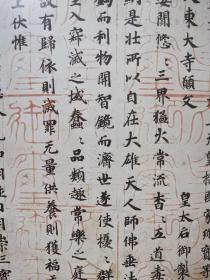 東大寺願文 皇太后御製
妾聞悠〻三界猛火常流杳〻五道毒
是壯所以自在大雄天人師佛垂法
鈎而利物開智鏡而濟世遂使擾〻
生入寂滅之域蠢〻品類趣常樂之庭
故有歸依則滅罪无量供養則獲福
上伏惟